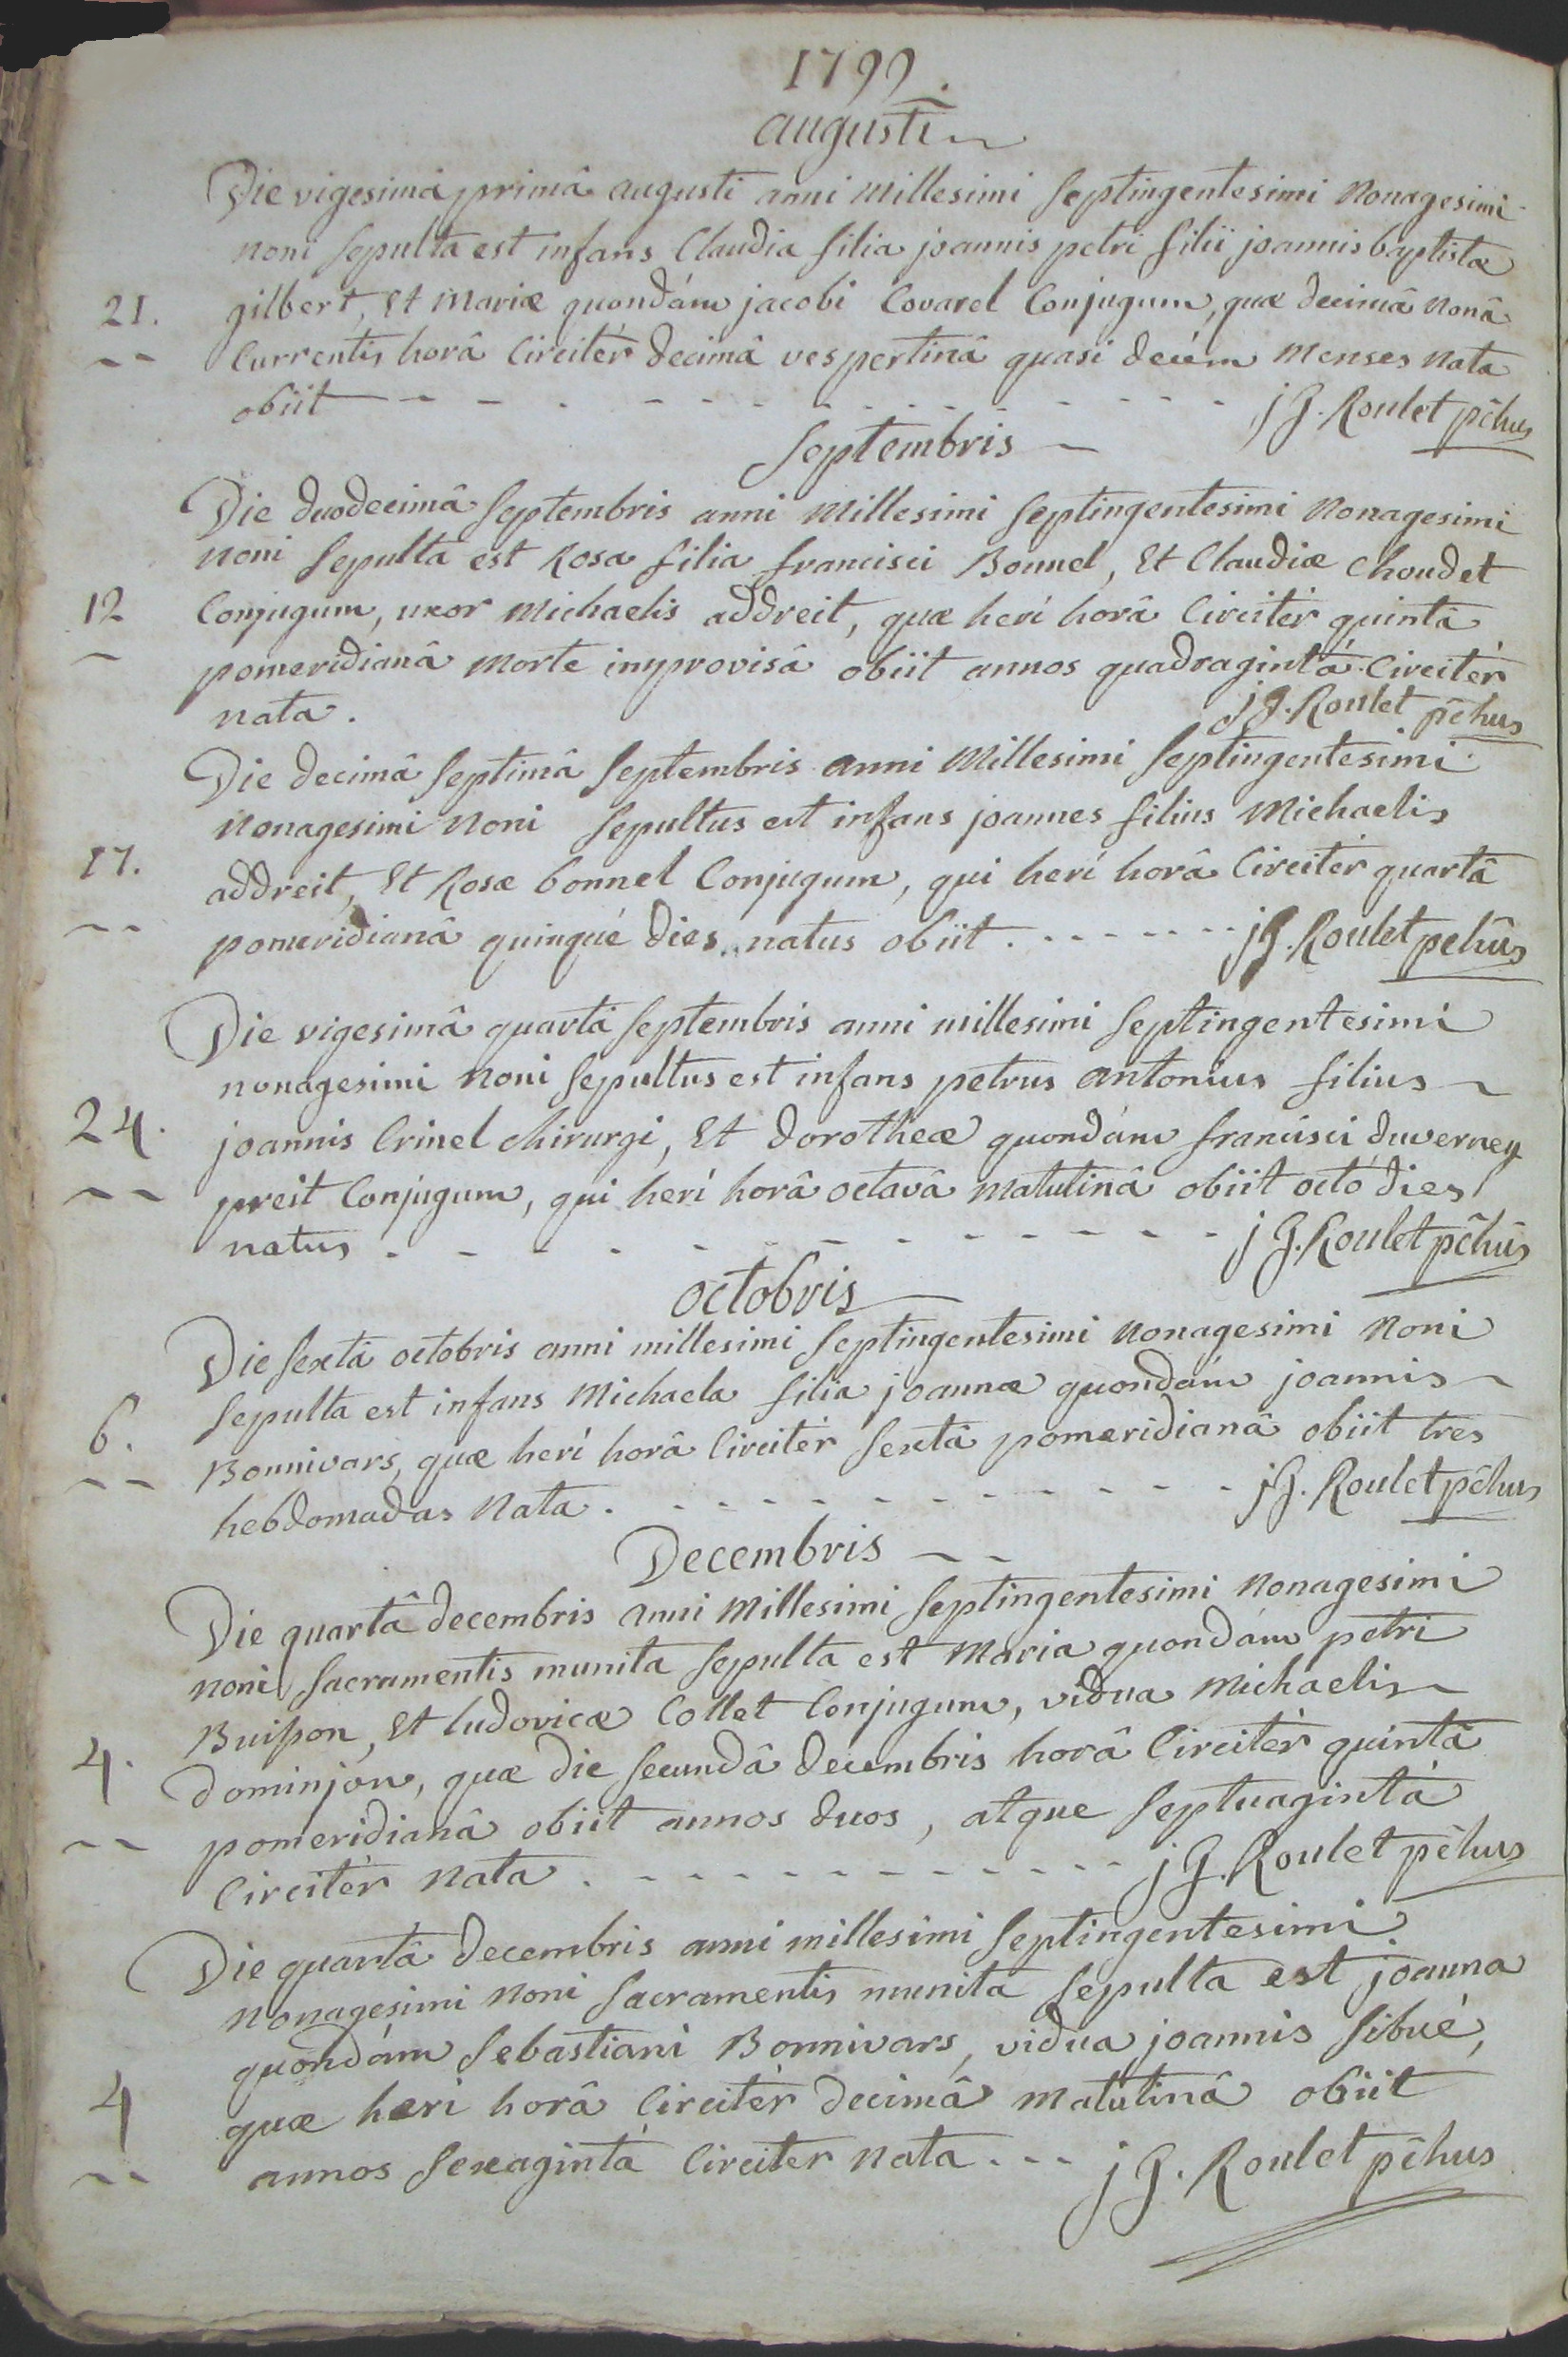 1799.
augusti
Die vigesimâ primâ augusti anni Millesimi Septingentesimi Nonagesimi
noni sepulta est infans Claudia filia joannis petri filii joannis baptistæ
21.
gilbert, Et Mariæ quondám jacobi Covarel Conjugum, quæ decimâ nonâ
Currentis horâ Circitér decimâ vespertinâ quasi decém Menses Nata
obiit
j G. Roulet pĉhus
Septembris
Die duodecimâ Septembris anni Millesimi Septingentesimi Nonagesimi
noni Sepulta est Rosa filia francisci Bonnel, Et Claudiæ Choudet
12
Conjugum, uxor Michaelis addreit, quæ herí horâ Circitér quintâ
pomeridianâ Morte improvisâ obiit annos quadragintá Circitér
nata.
j G. Roulet pĉhus
Die decimâ Septimâ Septembris anni Millesimi Septingentesimi
Nonagesimi Noni Sepultus est infans joannes filius Michaelis
17.
addreit, Et Rosæ bonnel Conjugum, qui herí horâ Circitér quartâ
pomeridianâ quinqué dies natus obiit.
j G. Roulet pĉhus
Die vigesimâ quartâ Septembris anni millesimi Septingentesimi
nonagesimi Noni Sepultus est infans petrus antonius filius
24.
joannis Crinel chirurgi, Et dorotheæ quondám francisci duverney
preit Conjugum, qui herí horâ octavâ Matutinâ obiit octó dies
natus
j G. Roulet pĉhus
octobris
Die Sextâ octobris anni millesimi Septingentesimi Nonagesimi Noni
Sepulta est infans Michaela filia joannæ quondám joannis
6.
Bonnivars, quæ herí horâ Circitér Sextâ pomeridianâ obiit tres
hebdomadas Nata.
j G. Roulet pĉhus
Decembris
Die quartâ decembris anni Millesimi Septingentesimi Nonagesimi
noni Sacramentis munita Sepulta est Maria quondám petri
Buisson, Et ludovicæ Collet Conjugum, vidua Michaelis
4.
dominjon, quæ die Secundâ decembris horâ Circitér quintâ
pomeridianâ obiit annos duos, atque Septuagintá
Circitér Nata.
j G. Roulet pĉhus
Die quartâ decembris anni millesimi Septingentesimi
Nonagesimi Noni Sacramentis munita Sepulta est joanna
quondám Sebastiani Bonnivars, vidua joannis Sibué,
4
quæ herí horâ Circitér decimâ Matutinâ obiit
annos Sexagintá Circitér Nata
j G. Roulet pĉhus